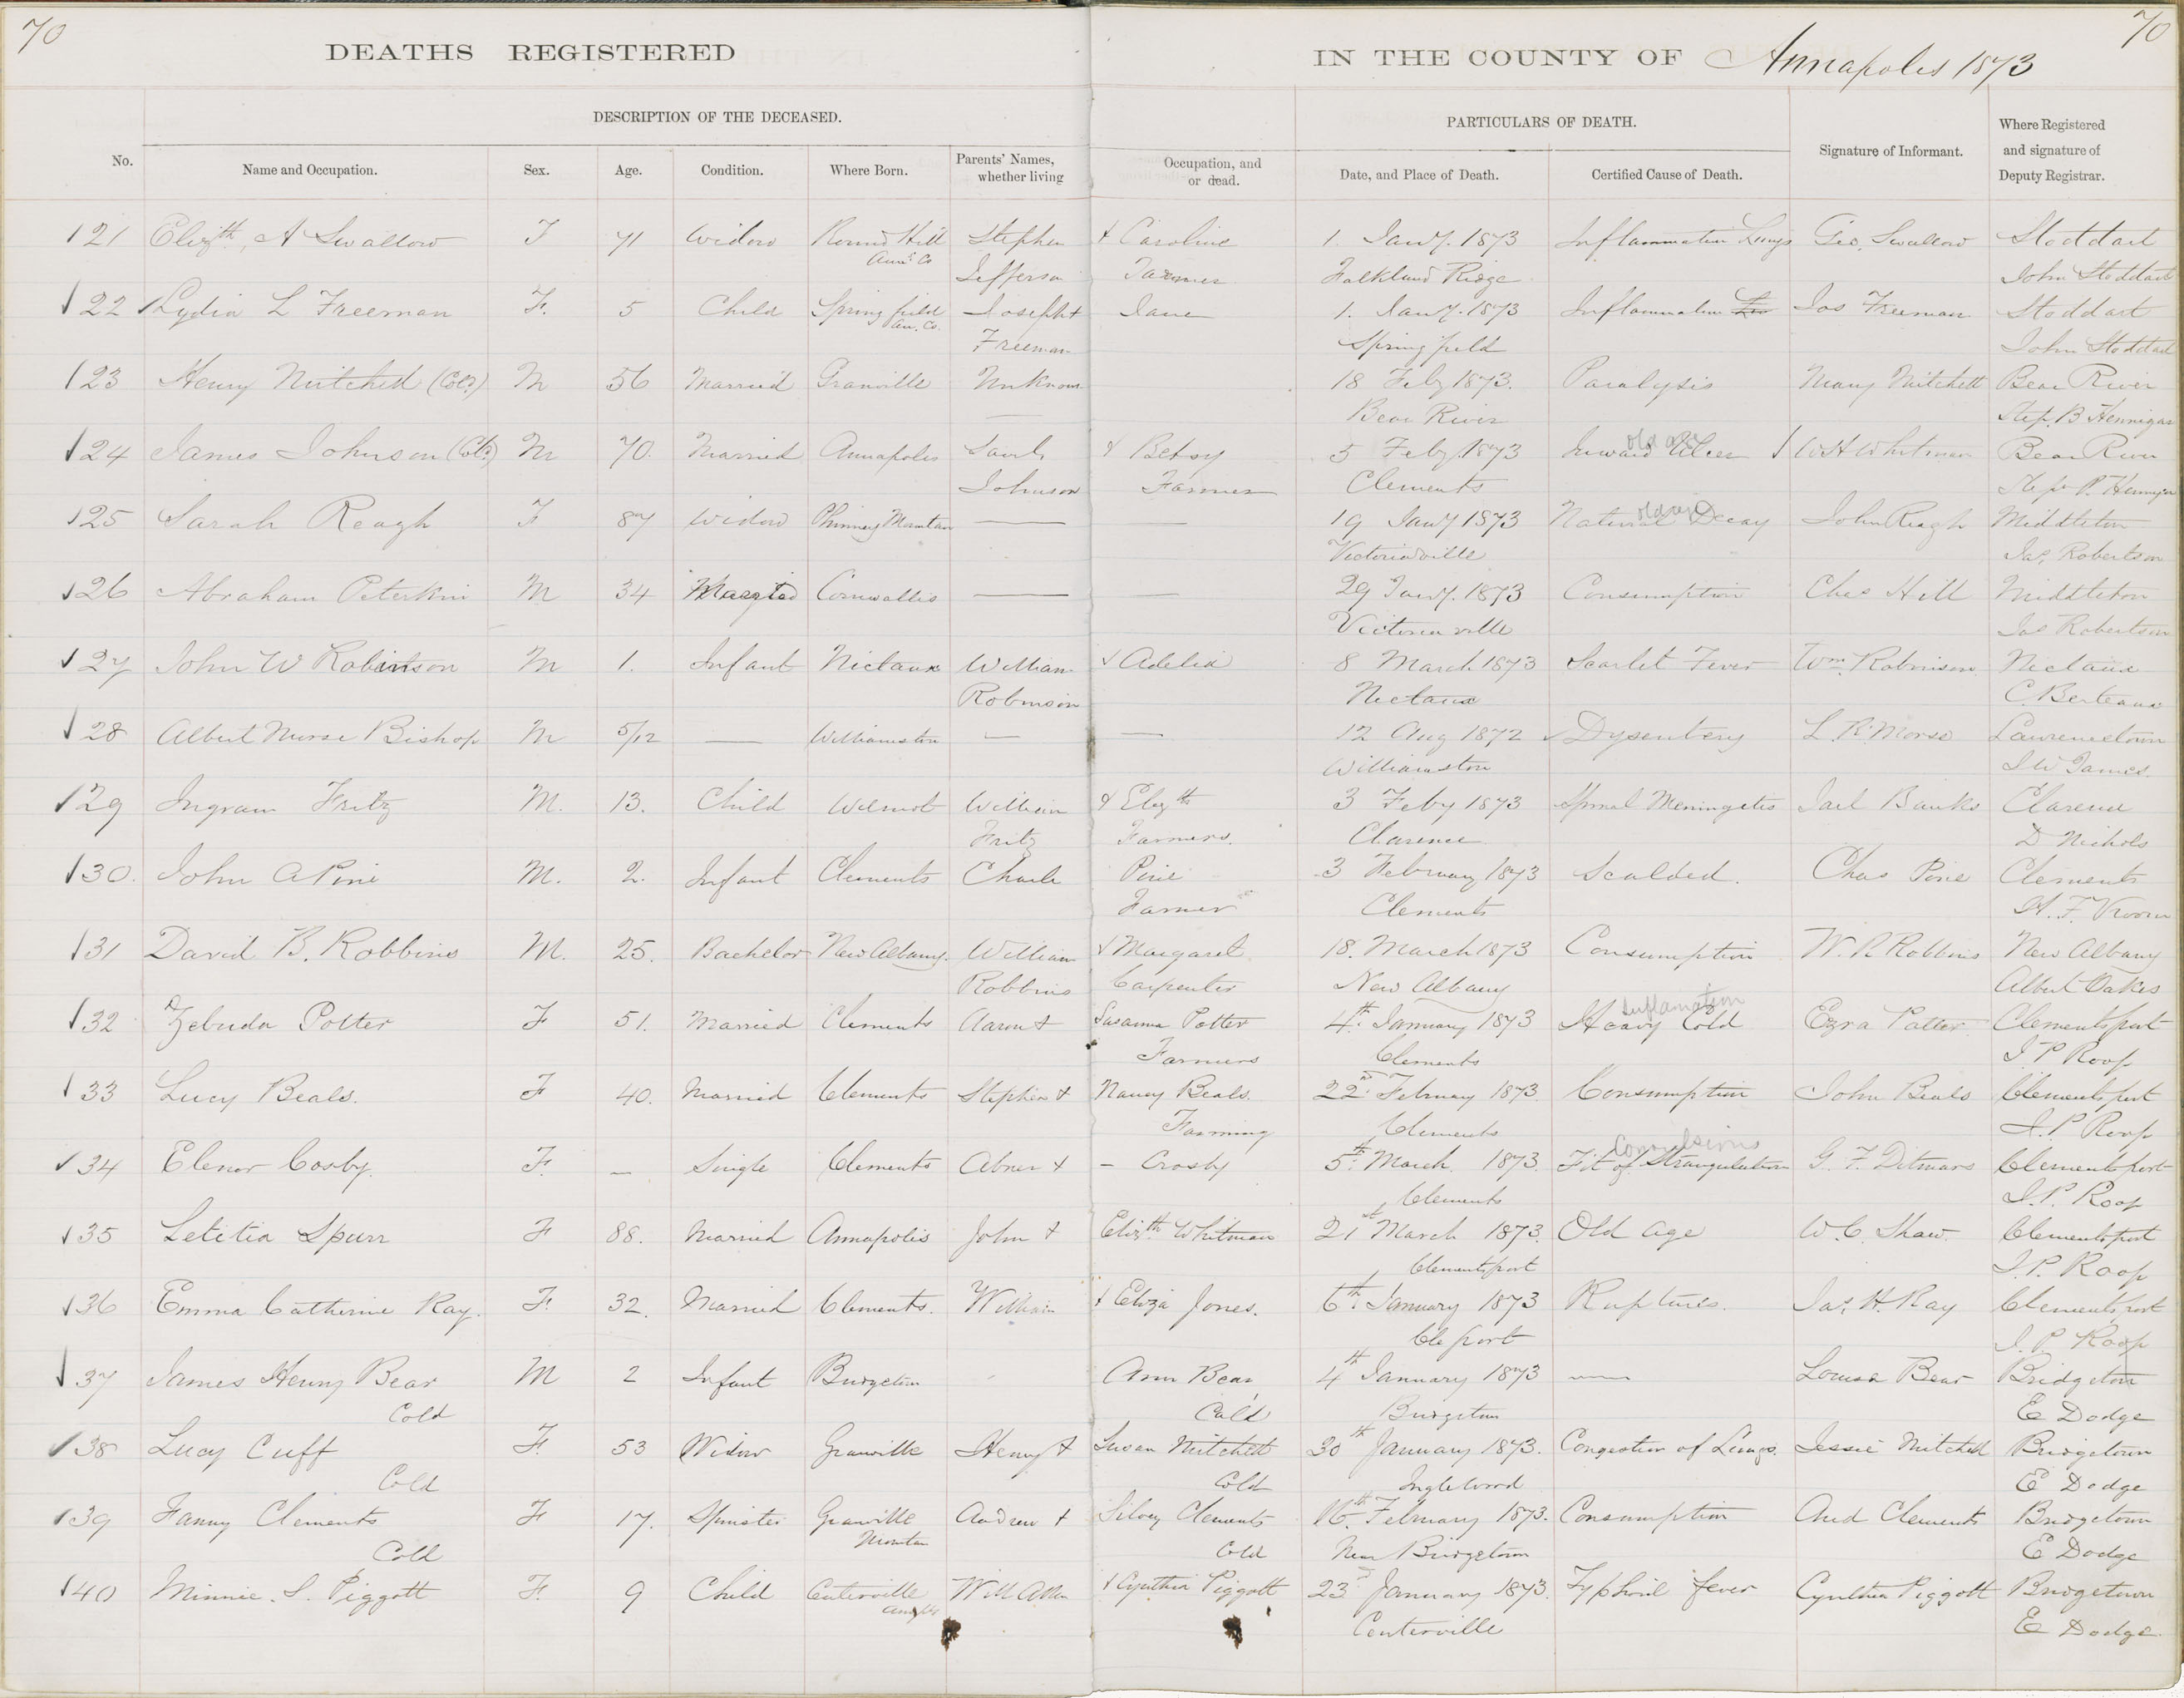 70
DEATHS REGISTERED
IN THE COUNTY OF Annapolis 1873
70
DESCRIPTION OF THE DECEASED.
PARTICULARS OF DEATH.
No.
Name and Occupation.
Sex.
Age.
Condition.
Where Born.
Parents' Names, whether living
Occupation, and or dead.
Date, and Place of Death.
Certified Cause of Death.
Signature of Informant.
Where Registered and signature of Deputy Registrar.
121 Elizth A Swallow F 71 Widow Round Hill Stephen & Caroline 1. Jany. 1873 Inflammation Lungs Geo. Swallow Stoddart
Anns Co Jefferson Falkland Ridge John Stoddart
122 Lydia L Freeman F. 5 Child Springfield Joseph & Jane 1. Jany. 1873 Inflammation Jos Freeman Stoddart
An. Co. Freeman Springfield John Stoddart
123 Henry Mitchell (Cold) M 56 Married Granville Unknown 18 Feby 1873. Paralysis Mary Mitchell Bear River
Bear River Step. B Hennigar
124 James Johnson (Cold) M 70. Married Annapolis & Betsy 5 Feby. 1873 Inward Ulcer old age W H Whitman Bear River
Johnson Farmer Clements Hennigar
125 Sarah Reagh F 87 Widow Phinney Mountain — — 19 Jany 1873 Natural Decay old age John Reagh Middleton
Victoriaville Jas. Robertson
126 Abraham Peterkin M 34 Married Cornwallis — — 29 Jany. 1873 Consumption Chas Hill Middleton
Victoria ville Jas Robertson
127 John W Robinson M 1. Infant Nictaux William & Adelia 8 March 1873 Scarlet Fever Wm. Robinson Nictaux
Robinson Nictaux C. Berteaux
128 Albert Nurse Bishop M 5/12 — Williamston — — 12 Aug 1872 Dysentery L. R. Morse Lawrencetown
Williamston J W James.
129 Ingram Fritz M. 13. Child Wilmot William & Elizth 3 Feby 1873 Spinal Meningetis Banks Clarence
Fritz Farmers. Clarence D Nichols
130. John A Pine M. 2. Infant Clements Charle Pine 3 February 1873 Scalded. Chas Pine Clements
Farmer Clements H. F. Vroom
131 David B. Robbins M. 25. Bachelor New Albany. William & Margaret 18. March 1873 Consumption W. R Robbins New Albany
Robbins Carpenter New Albany Albert Oakes
132 Zebuda Potter F 51. Married Clements Aaron & Susanna Potter 4th January 1873 Heavy Cold Inflamation Ezra Potter Clementsport
Farmers Clements J P Roop
133 Lucy Beals. F 40. Married Clements Stephen & Nancy Beals. 22nd February 1873. Consumption John Beals Clementsport
Farming Clements J. P Roop
134 Elenor Cosby. F. — Single Clements Abner & — Crosby 5th March. 1873. Fit of Strangulation Convulsions G. F. Ditmars Clementsport
Clements J. P. Roop
135 Letitia Spurr F 88. Married Annapolis John & Elizth Whitman 21st March 1873. Old Age W. C. Shaw. Clementsport
Clementsport J. P. Roop
136 Emma Catherine Ray. F. 32. Married Clements. William & Eliza Jones. 6th January 1873 Rupture. Jas. H. Ray Clementsport
Cle port J. P Roop
137 James Henry Bear M 2 Infant Bridgetown Ann Bear 4th January 1873 — Louisa Bear Bridgetown
Cold Cold Bridgetown E Dodge
138 Lucy Cuff F. 53 Widow Granville Henry & Susan Mitchell 30th January 1873. Congestion of Lungs. Jessie Mitchell Bridgetown
Cold Cold Inglewood E Dodge
139 Fanny Clements F 17. Spinster Granville Andrew & Silvey Clements 16th February 1873. Consumption And Clements Bridgetown
Cold Mountain Cold Near Bridgetown E Dodge
140 Minnie. S. Piggott F. 9 Child Centerville & Cynthia Piggott 23rd January 1873. Typhoid fever Cynthia Piggott Bridgetown
Centerville E Dodge